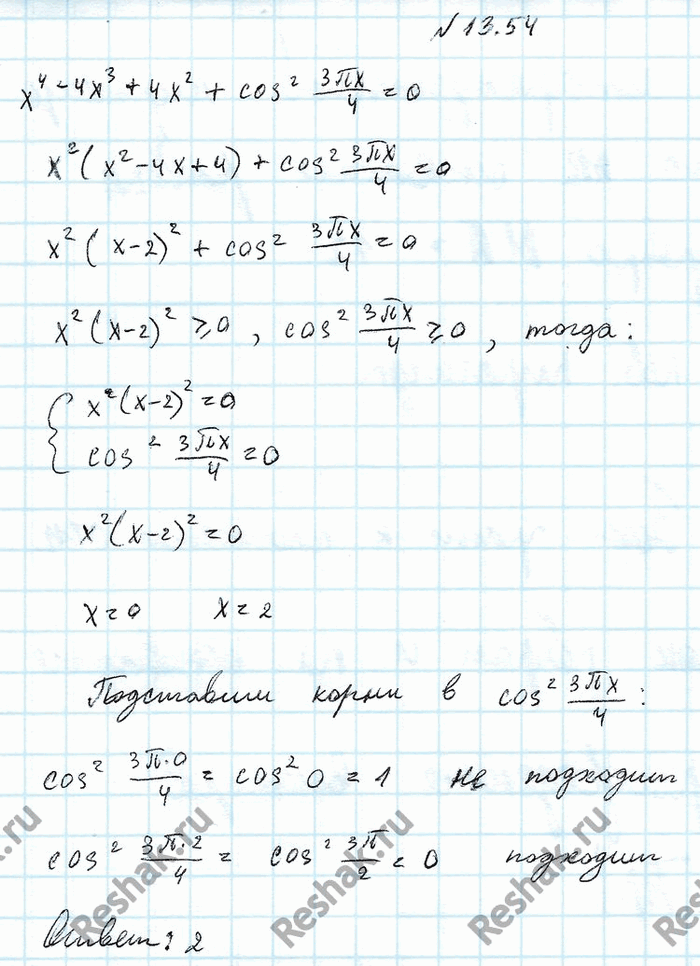 № 13.54
x⁴ - 4x³ + 4x² + cos² 3πx/4 = 0
x² (x² - 4x + 4) + cos² 3πx/4 = 0
x² (x-2)² + cos² 3πx/4 = 0
x² (x-2)² ≥ 0, cos² 3πx/4 ≥ 0, тогда:
{ x² (x-2)² = 0
cos² 3πx/4 = 0
x² (x-2)² = 0
x = 0 x = 2
Подставим корни в cos² 3πx/4 :
cos² 3π·0/4 = cos² 0 = 1 не подходит
cos² 3π·2/4 = cos² 3π/2 = 0 подходит
Ответ: 2
Reshak.ru
Reshak.ru
Reshak.ru
Reshak.ru